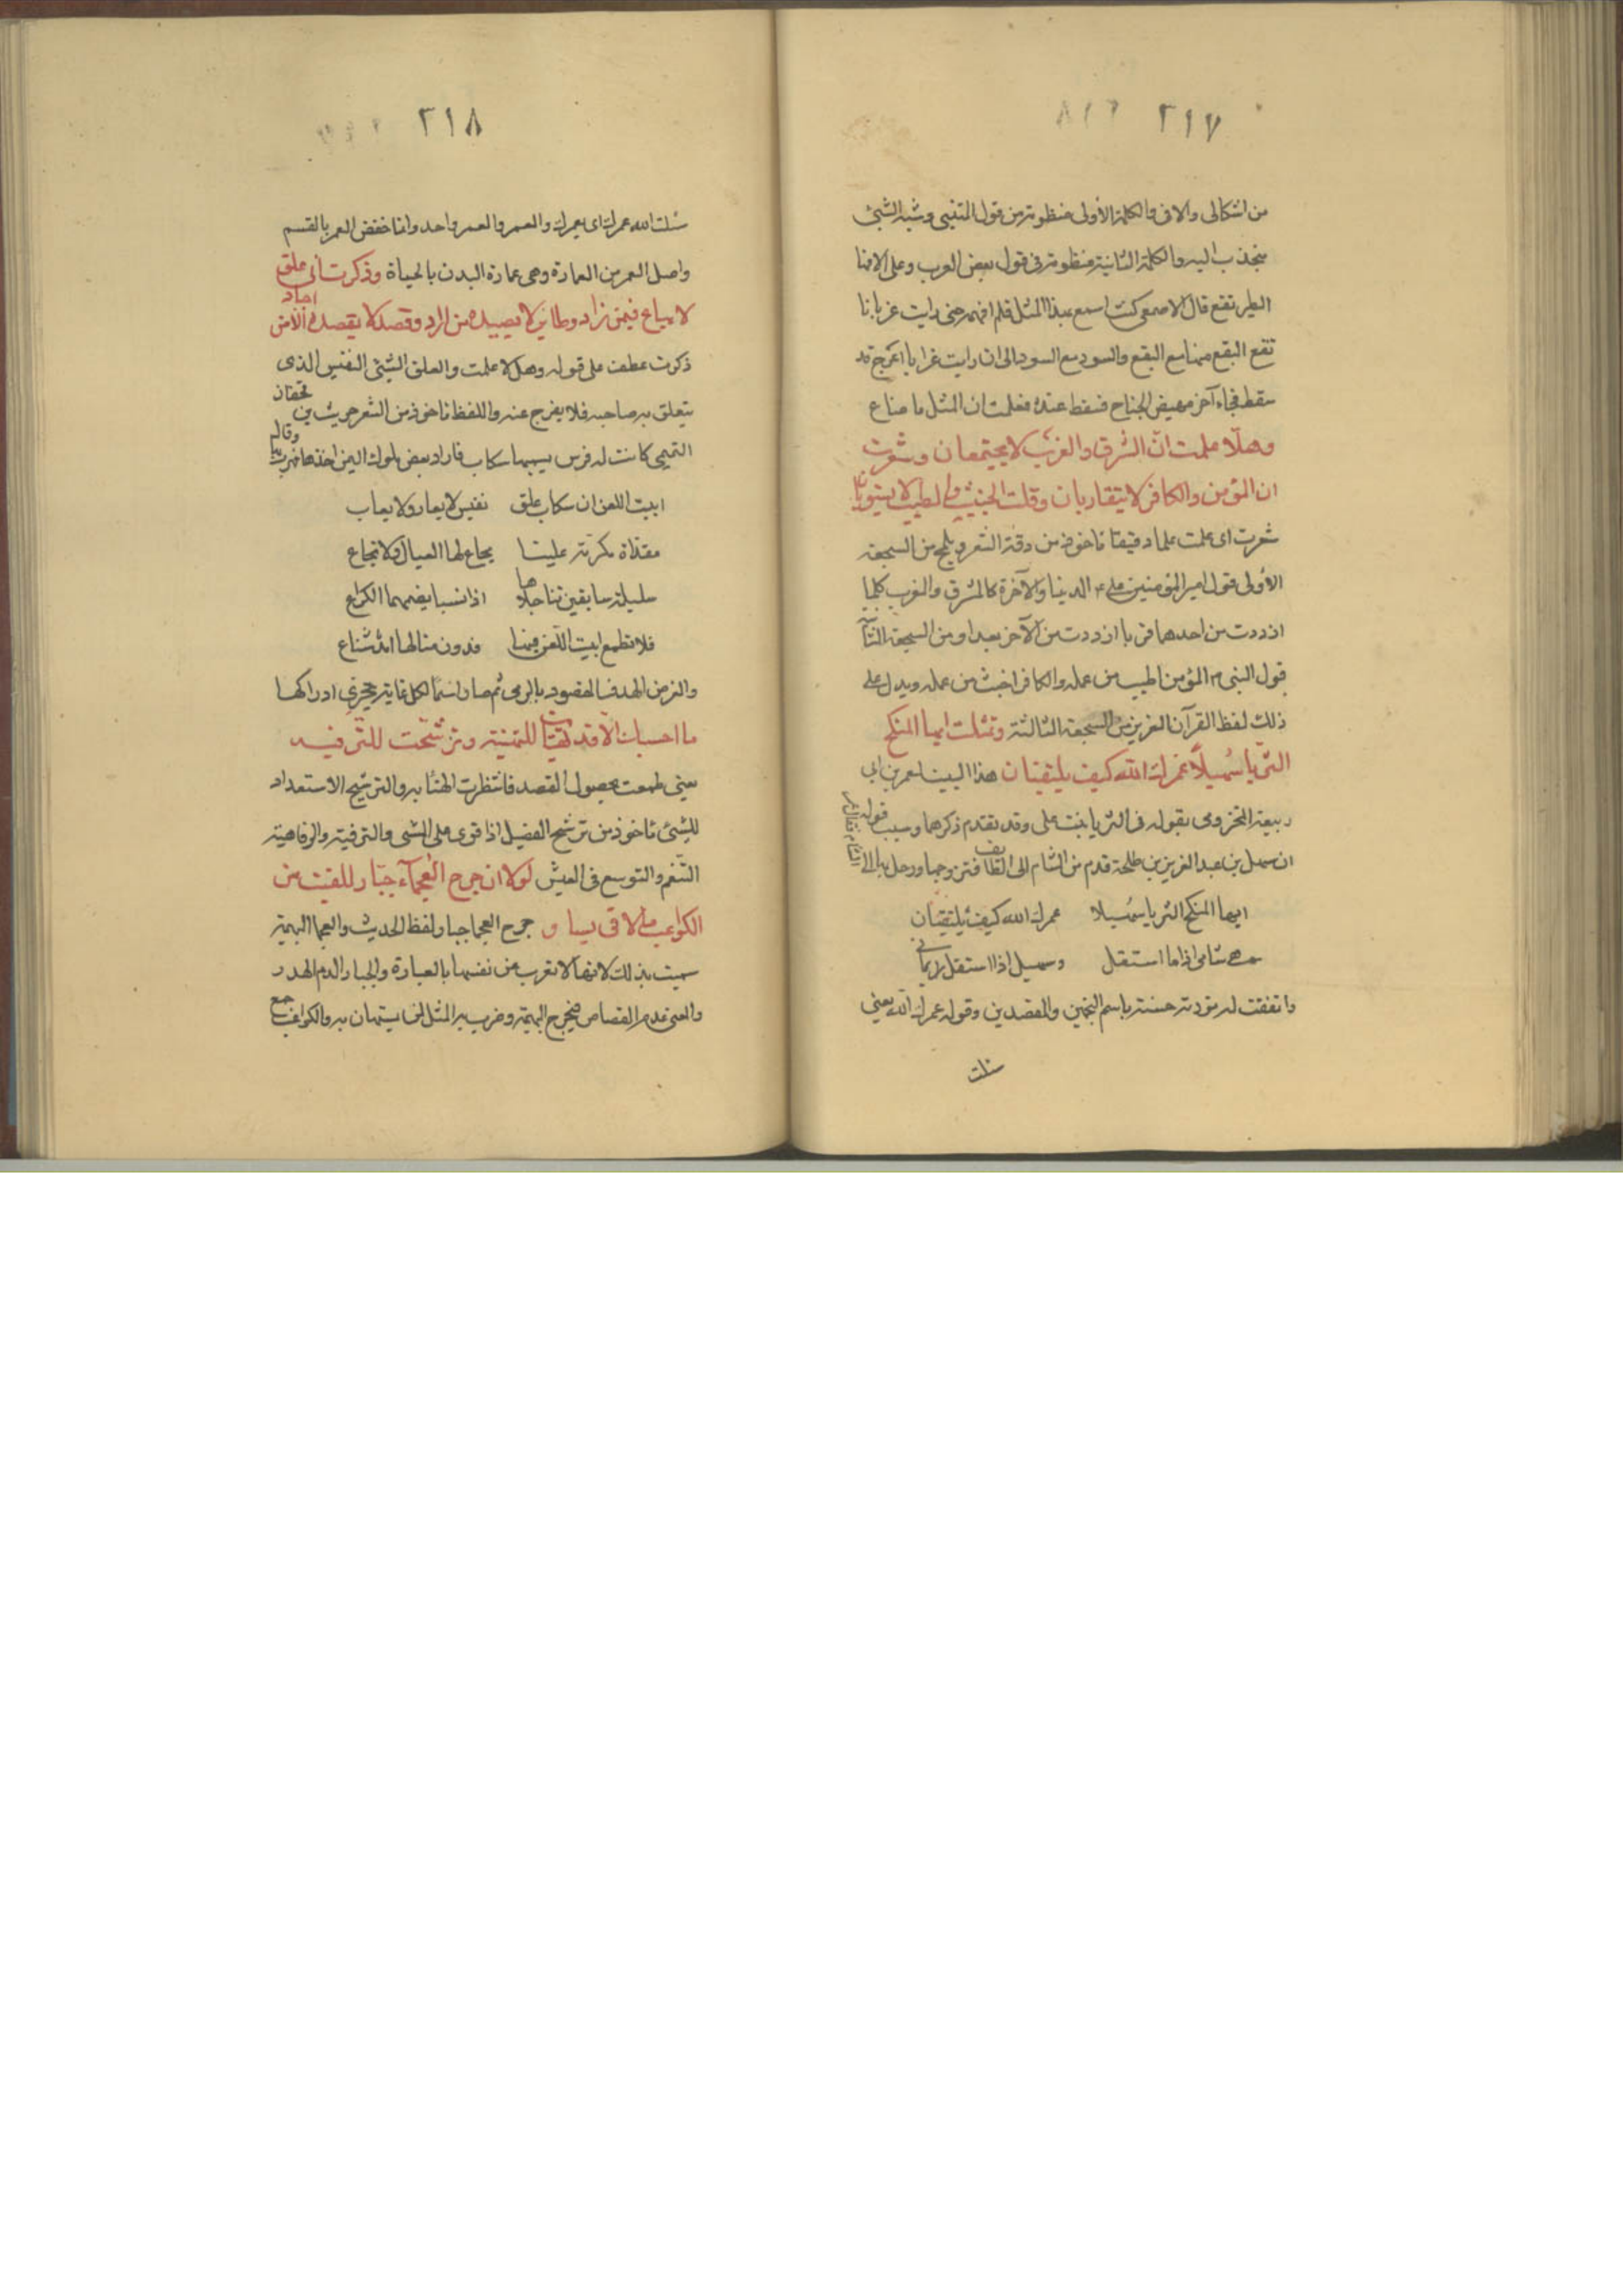 ٣١٧
من اشكالى والافى فالكلمة الأولى منظومة من قول المتنبى وشبه الشئ
منجذب اليه والكلمة الثانية منظومة فى قول بعض العرب وعلى الافها
الطير تقع قال الاصمعى كنت اسمع بهذا المثل فلم افهمه حتى رايت غربانا
تقع البقع منها مع البقع والسود مع السود الى ان رايت غرابا اعرج قد
سقط فجاء آخر مهيض الجناح فسقط عنده فعلمت ان المثل ما ضاع
وهلّا علمت انّ الشرق والغرب لا يجتمعان وشعرت
ان المؤمن والكافر لا يتقاربان وقلت الخبيث والطيب لا يستويان
شعرت اى علمت علما دقيقا ماخوذ من دقة الشعر ويلمح من السجعة
الأولى قول امير المؤمنين على ع الدنيا والآخرة كالمشرق والمغرب كلما
ازددت من احدهما قربا ازددت من الآخر بعدا ومن السجعة الثانية
قول النبى م المؤمن اطيب من عمله والكافر اخبث من عمله ويدل على
ذلك لفظ القرآن العزيز من السجعة الثالثة وتمثلت ايها المنكح
الثريا سُهيلًا عمرك الله كيف يلتقيان هذا البيت لعمر بن ابى
ربيعة المخزومى بقوله فى الثريا بنت على وقد تقدم ذكرها وسبب قوله
ان سهل بن عبد العزيز بن طلحة قدم من الشام الى الطائف فتزوجها ورحل بها الى
الشام فقال عمر
ايها المنكح الثريا سُهيلا عمرك الله كيف يلتقيان
هى شامى اذا ما استقلت وسهيل اذا استقل يمانى
واتفقت له تورية حسنة باسم النجمين والمقصدين وقوله عمرك الله يعنى
سئلت
٣١٨
سئلت الله عمرك اى يعمرك والعمر والعمر واحد وانما خفض العمر بالقسم
واصل العمر من العمارة وهى عمارة البدن بالحياة وذكرت أنى علق
لا يباع فيمن زاد وطائر لا يصيده من اراد وغرض لا يصيبه الا من اجاد
ذكرت عطف على قوله وهلا علمت والعلق الشئ النفيس الذى
يتعلق به صاحبه فلا يفرج عنه واللفظ ماخوذ من الشعر حريث بن تحفان
التميمى كانت له فرس يسيمها سكاب فاراد بعض ملوك اليمن اخذها فهرب بها وقال
ابيت اللعن ان سكاب علق نفيس لا يعار ولا يعاب
مفداة مكرمة علينا يجاع لها العيال ولا تجاع
سليلة سابقين تناجلاها اذا نسبا يضمهما الكراع
فلا تطمع ابيت اللعن فيها فدون منالها
والغرض الهدف المقصود بالرمى ثم صار اسما لكل غاية يتحرى ادراكها
ما احسبك الا قد تهيّأت للتهنية وترشّحت للترفيه
يعنى طمعت بحصول القصد فانتظرت الهنئا به والترشيح الاستعداد
للشئ ماخوذ من ترشح الفصيل اذا قوى على المشى والترفيه والرفاهية
التنعم والتوسع فى العيش لولا ان جرح العجمآء جبار للقيت من
الكواعب ما لاقى يسار و جرح العجما جبار لفظ الحديث والعجما البهيمة
سميت بذلك لانها لا تعرب عن نفسها بالعبارة والجبار الدم الهدر
والمعنى عدم القصاص فى جرح البهيمة وضرب به المثل لمن يستهان به والكواعب جمع